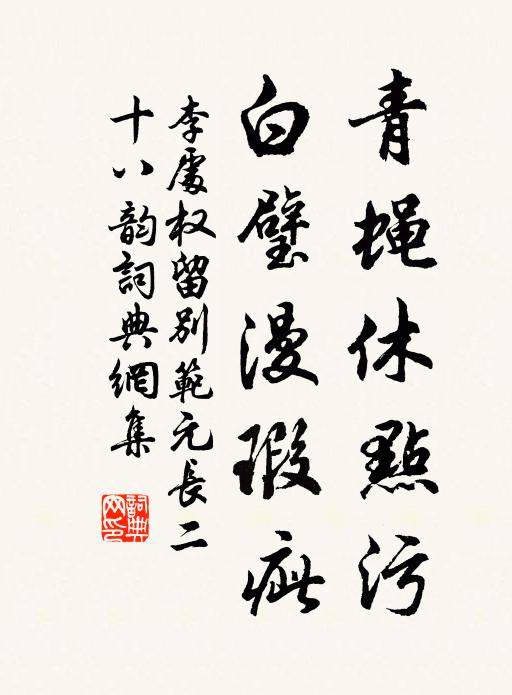 青蝇休點污
白璧漫瑕疵
李處权留別範元長二
十八韵詞典網集
詞典網印